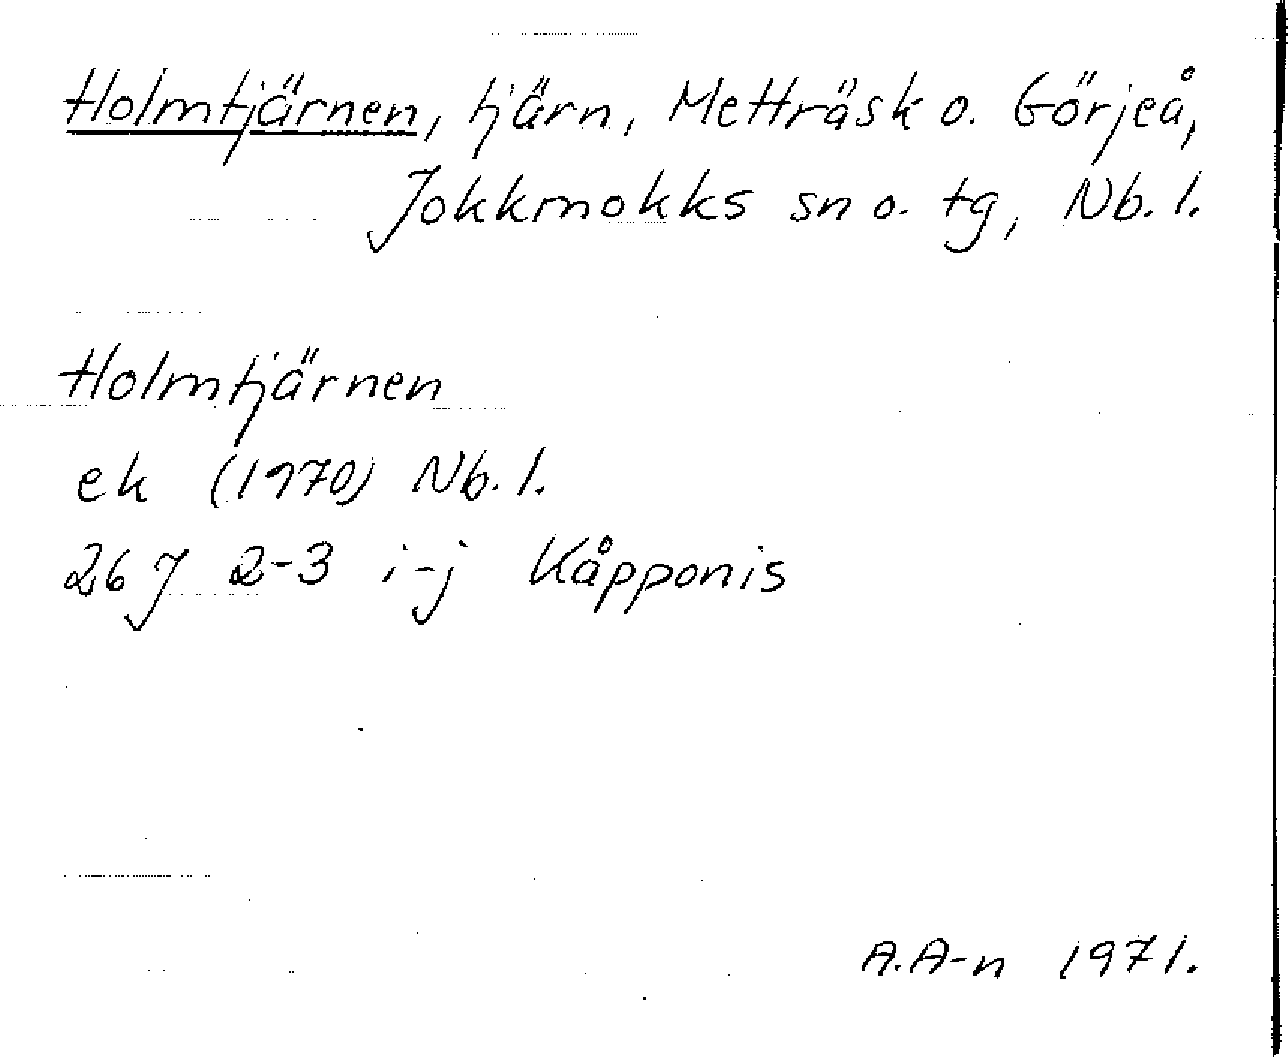 Holmtjärnen, tjärn, Metträsk o. Görjeå,
Jokkmokks sn o. tg, Nb. l.
Holmtjärnen
ek (1970) Nb. l.
26 J 2-3 i-j Kåpponis
A.A-n 1971.